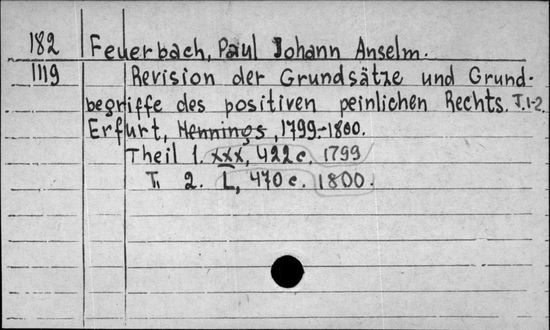 182 Feuerbach, Paul Johann Anselm.
1119 Revision der Grundsätze und Grund-
begriffe des positiven peinlichen Rechts. T.1-2
Erfurt, Hennings, 1799-1800.
Theil 1. XXX, 422 c. 1799
T. 2. L, 470 c. 1800.